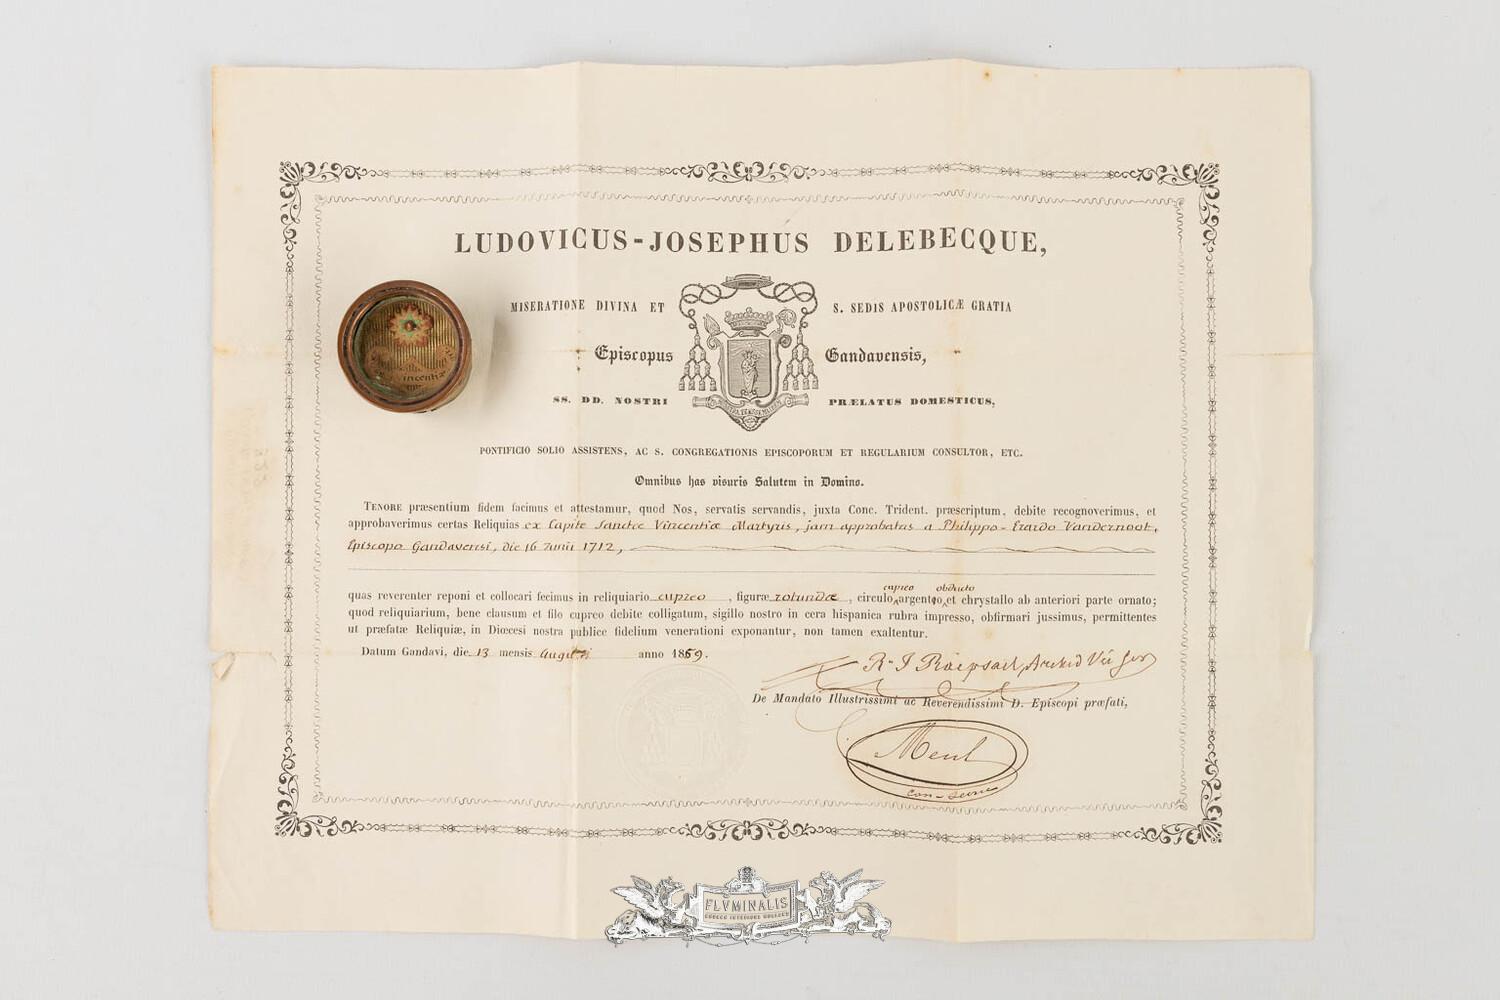 LUDOVICUS-JOSEPHUS DELEBECQUE,
MISERATIONE DIVINA ET S. SEDIS APOSTOLICÆ GRATIA
Episcopus Gandavensis,
SS. DD. NOSTRI PRÆLATUS DOMESTICUS,
PONTIFICIO SOLIO ASSISTENS, AC S. CONGREGATIONIS EPISCOPORUM ET REGULARIUM CONSULTOR, ETC.
Omnibus has visuris Salutem in Domino.
TENORE præsentium fidem facimus et attestamur, quod Nos, servatis servandis, juxta Conc. Trident. præscriptum, debite recognoverimus, et
approbaverimus certas Reliquias ex Capite Sanctæ Vincentiæ Martyris, jam approbatas a Philippo-Erardo Vandernoot,
Episcopo Gandavensi, die 16 Junii 1712,
cupreo obducto
quas reverenter reponi et collocari fecimus in reliquiario cupreo, figuræ rotundæ, circulo argenteo et chrystallo ab anteriori parte ornato;
quod reliquiarium, bene clausum et filo cupreo debite colligatum, sigillo nostro in cera hispanica rubra impresso, obfirmari jussimus, permittentes
ut præfatæ Reliquiæ, in Diœcesi nostra publice fidelium venerationi exponantur, non tamen exaltentur.
Datum Gandavi, die 13 mensis Augusti anno 1869.
De Mandato Illustrissimi ac Reverendissimi D. Episcopi præfati,
Vincentiæ
FLVMINALIS